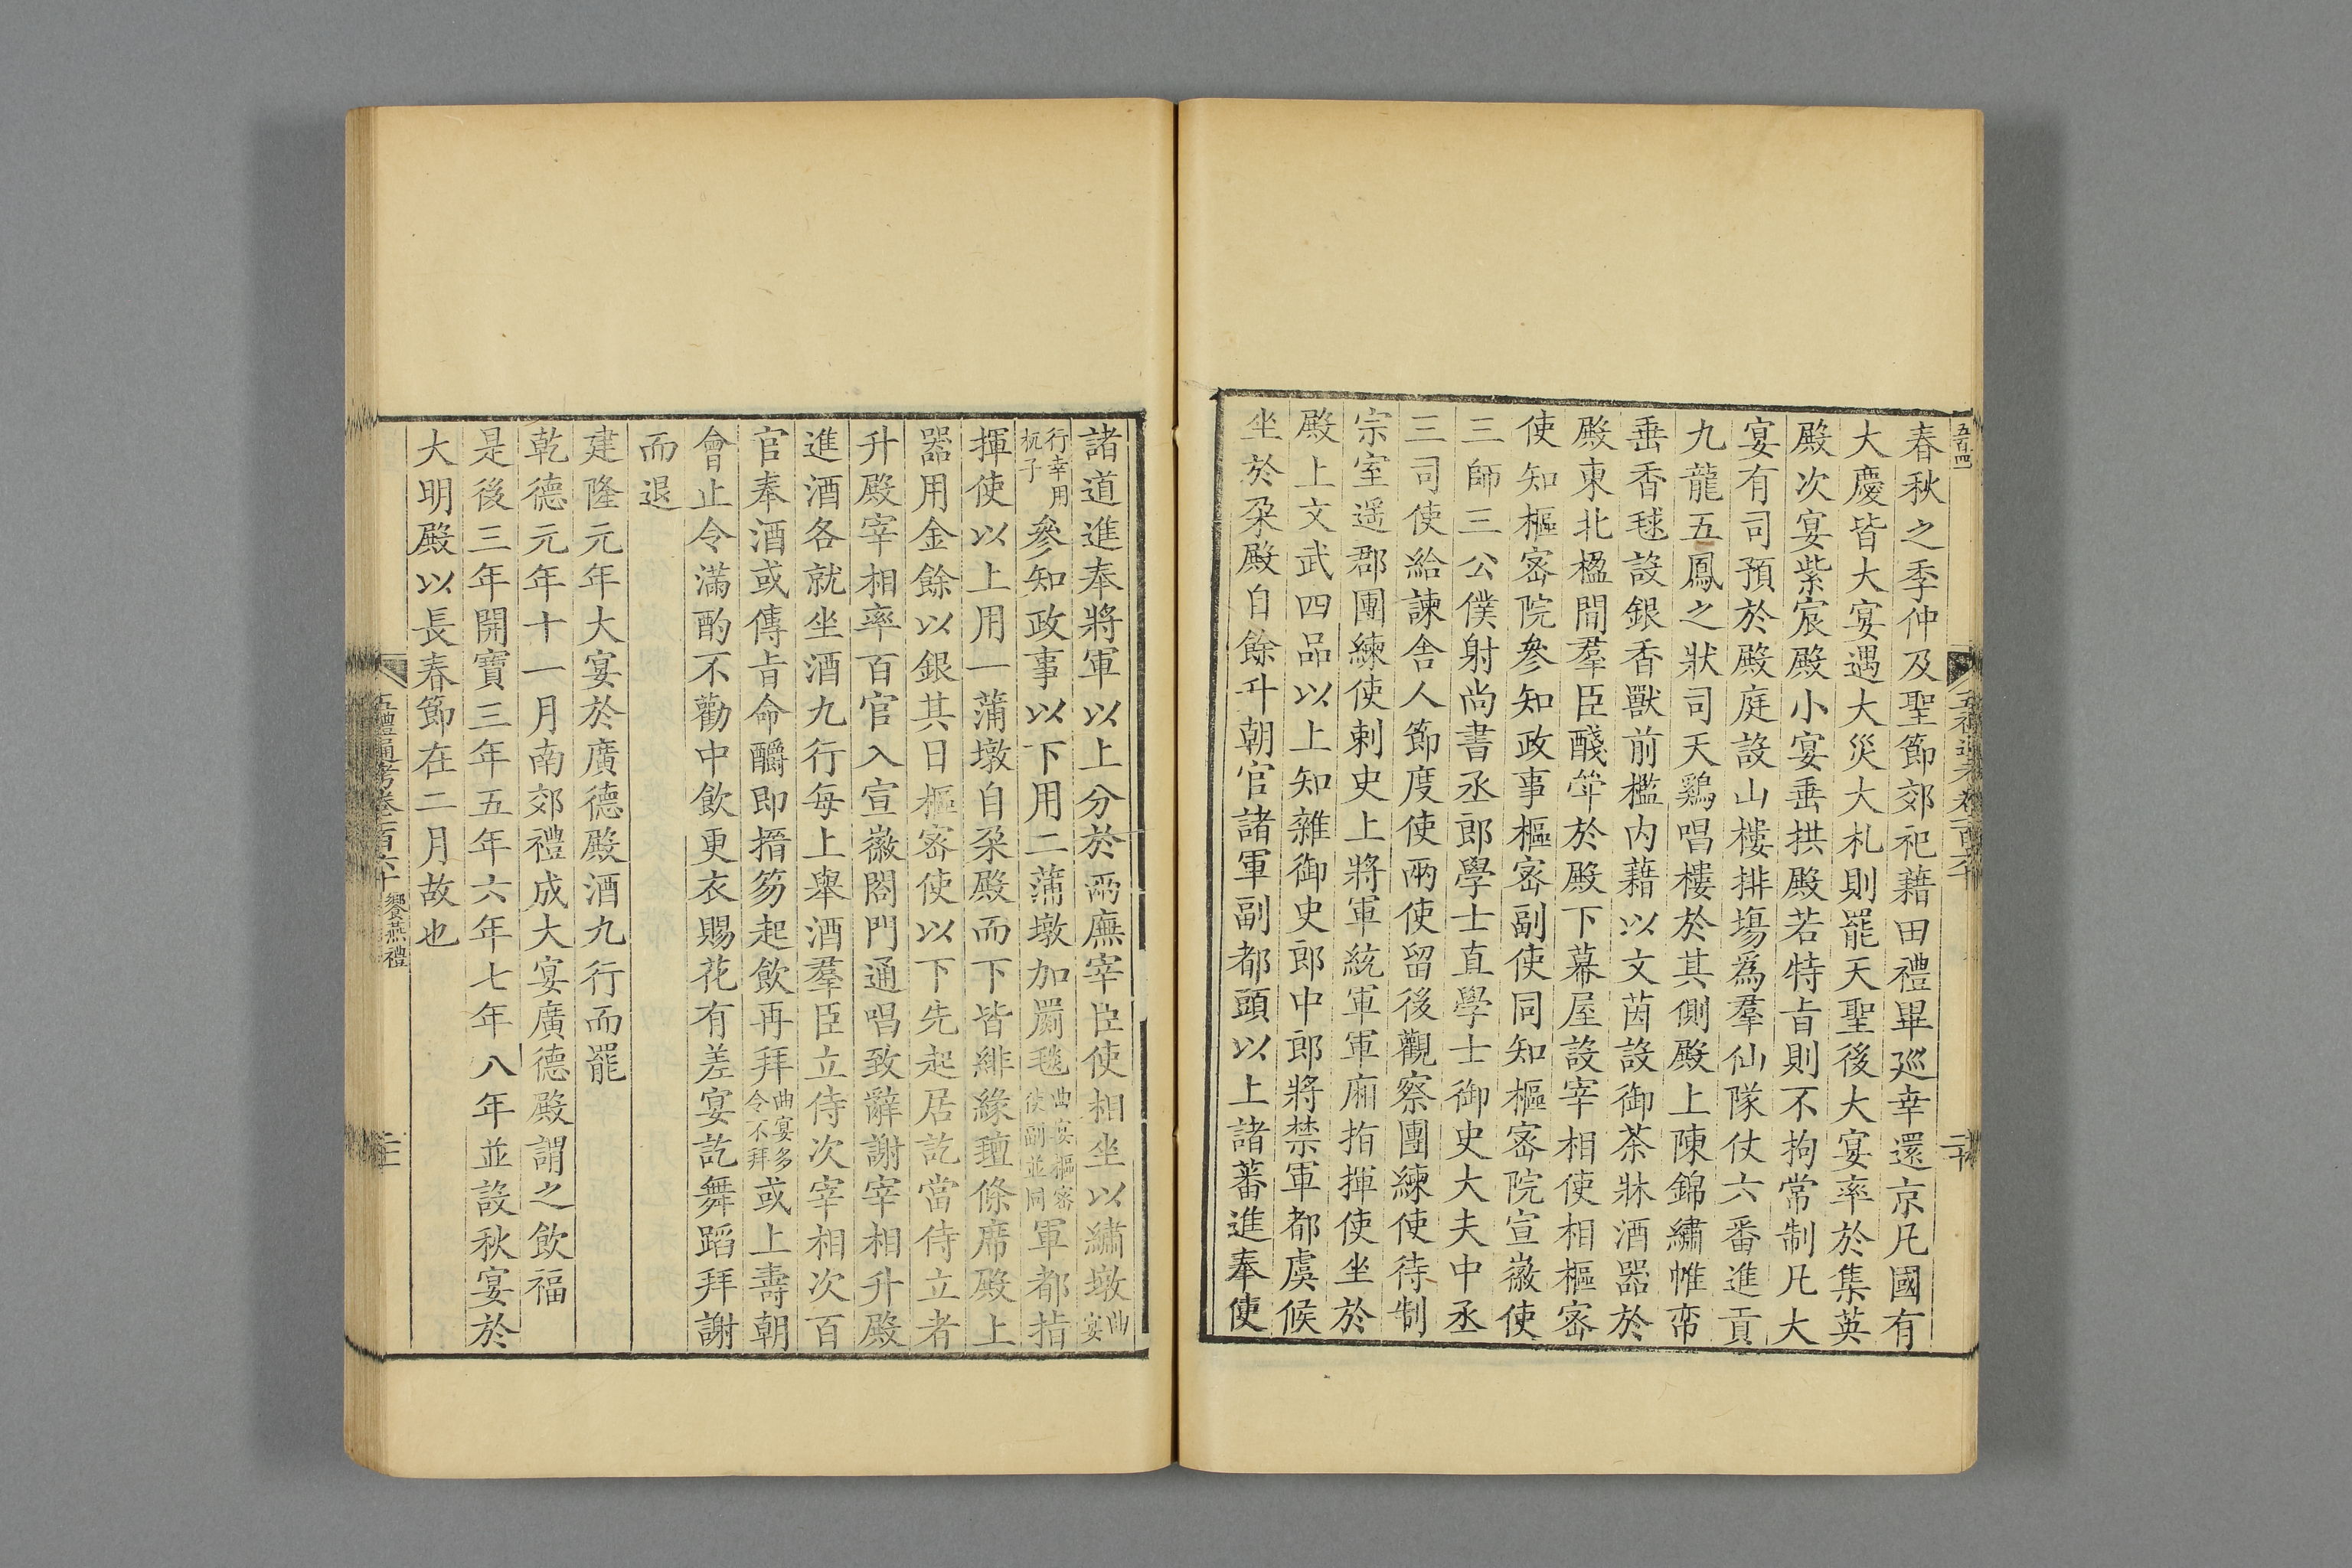 五百四
春秋之季仲及聖節郊祀藉田禮畢巡幸還京凡國有
大慶皆大宴遇大災大札則罷天聖後大宴率於集英
殿次宴紫宸殿小宴垂拱殿若特旨則不拘常制凡大
宴有司預於殿庭設山樓排塲爲羣仙隊仗六番進貢
九龍五鳳之狀司天鷄唱樓於其側殿上陳錦繡帷帟
垂香毬設銀香獸前檻内藉以文茵設御茶牀酒器於
殿東北楹間羣臣醆斝於殿下幕屋設宰相使相樞密
使知樞密院參知政事樞密副使同知樞密院宣徽使
三師三公僕射尚書丞郎學士直學士御史大夫中丞
三司使給諫舍人節度使兩使留後觀察團練使待制
宗室遥郡團練使刺史上將軍統軍軍廂指揮使坐於
殿上文武四品以上知雜御史郎中郎將禁軍都虞候
坐於朵殿自餘升朝官諸軍副都頭以上諸蕃進奉使
二十
諸道進奉將軍以上分於兩廡宰臣使相坐以繡墩曲宴
行幸用杌子參知政事以下用二蒲墩加罽毯曲宴樞密使副並同軍都指
揮使以上用一蒲墩自朵殿而下皆緋緣氊條席殿上
器用金餘以銀其日樞密使以下先起居訖當侍立者
升殿宰相率百官入宣徽閤門通唱致辭謝宰相升殿
進酒各就坐酒九行每上舉酒羣臣立侍次宰相次百
官奉酒或傳旨命釂即搢笏起飲再拜曲宴多令不拜或上壽朝
會止令滿酌不勸中飲更衣賜花有差宴訖舞蹈拜謝
而退
建隆元年大宴於廣德殿酒九行而罷
乾德元年十一月南郊禮成大宴廣德殿謂之飲福
是後三年開寶三年五年六年七年八年並設秋宴於
大明殿以長春節在二月故也
五禮通考卷一百六十 饗燕禮